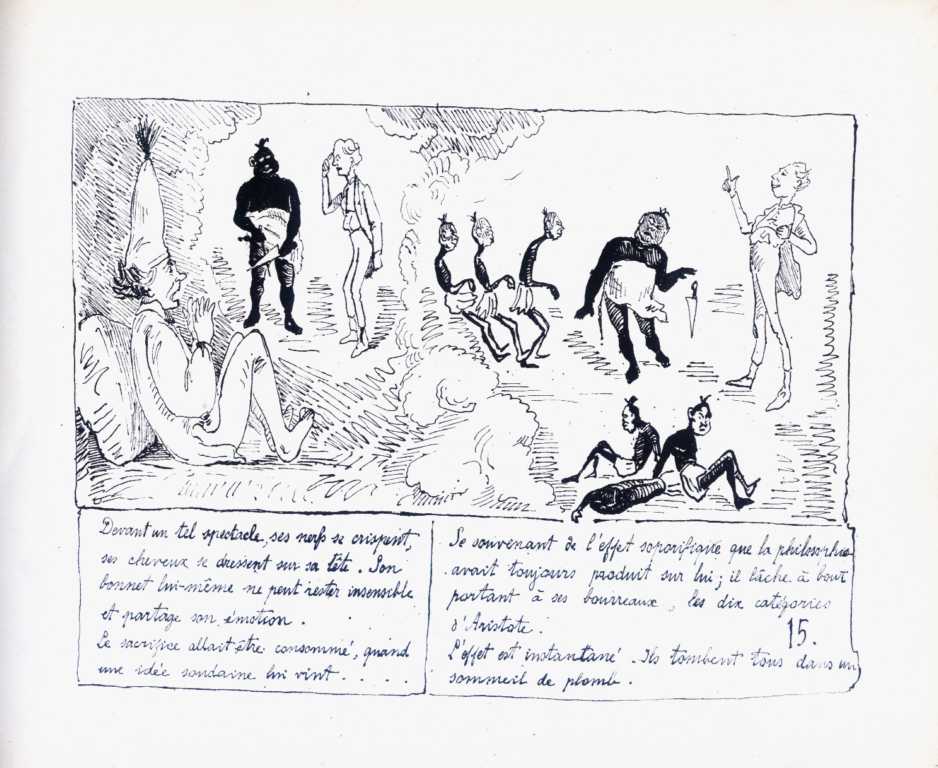 Devant un tel spectacle, ses nerfs se crispent,
ses cheveux se dressent sur sa tête. Son
bonnet lui-même ne peut rester insensible
et partage son émotion.
Le sacrifice allait être consommé, quand
une idée soudaine lui vint.....
Se souvenant de l'effet soporifique que la philosophie
avait toujours produit sur lui; il lâche à bout
portant à ses bourreaux, les dix catégories
d'Aristote.
15.
L'effet est instantané. Ils tombent tous dans un
sommeil de plomb.